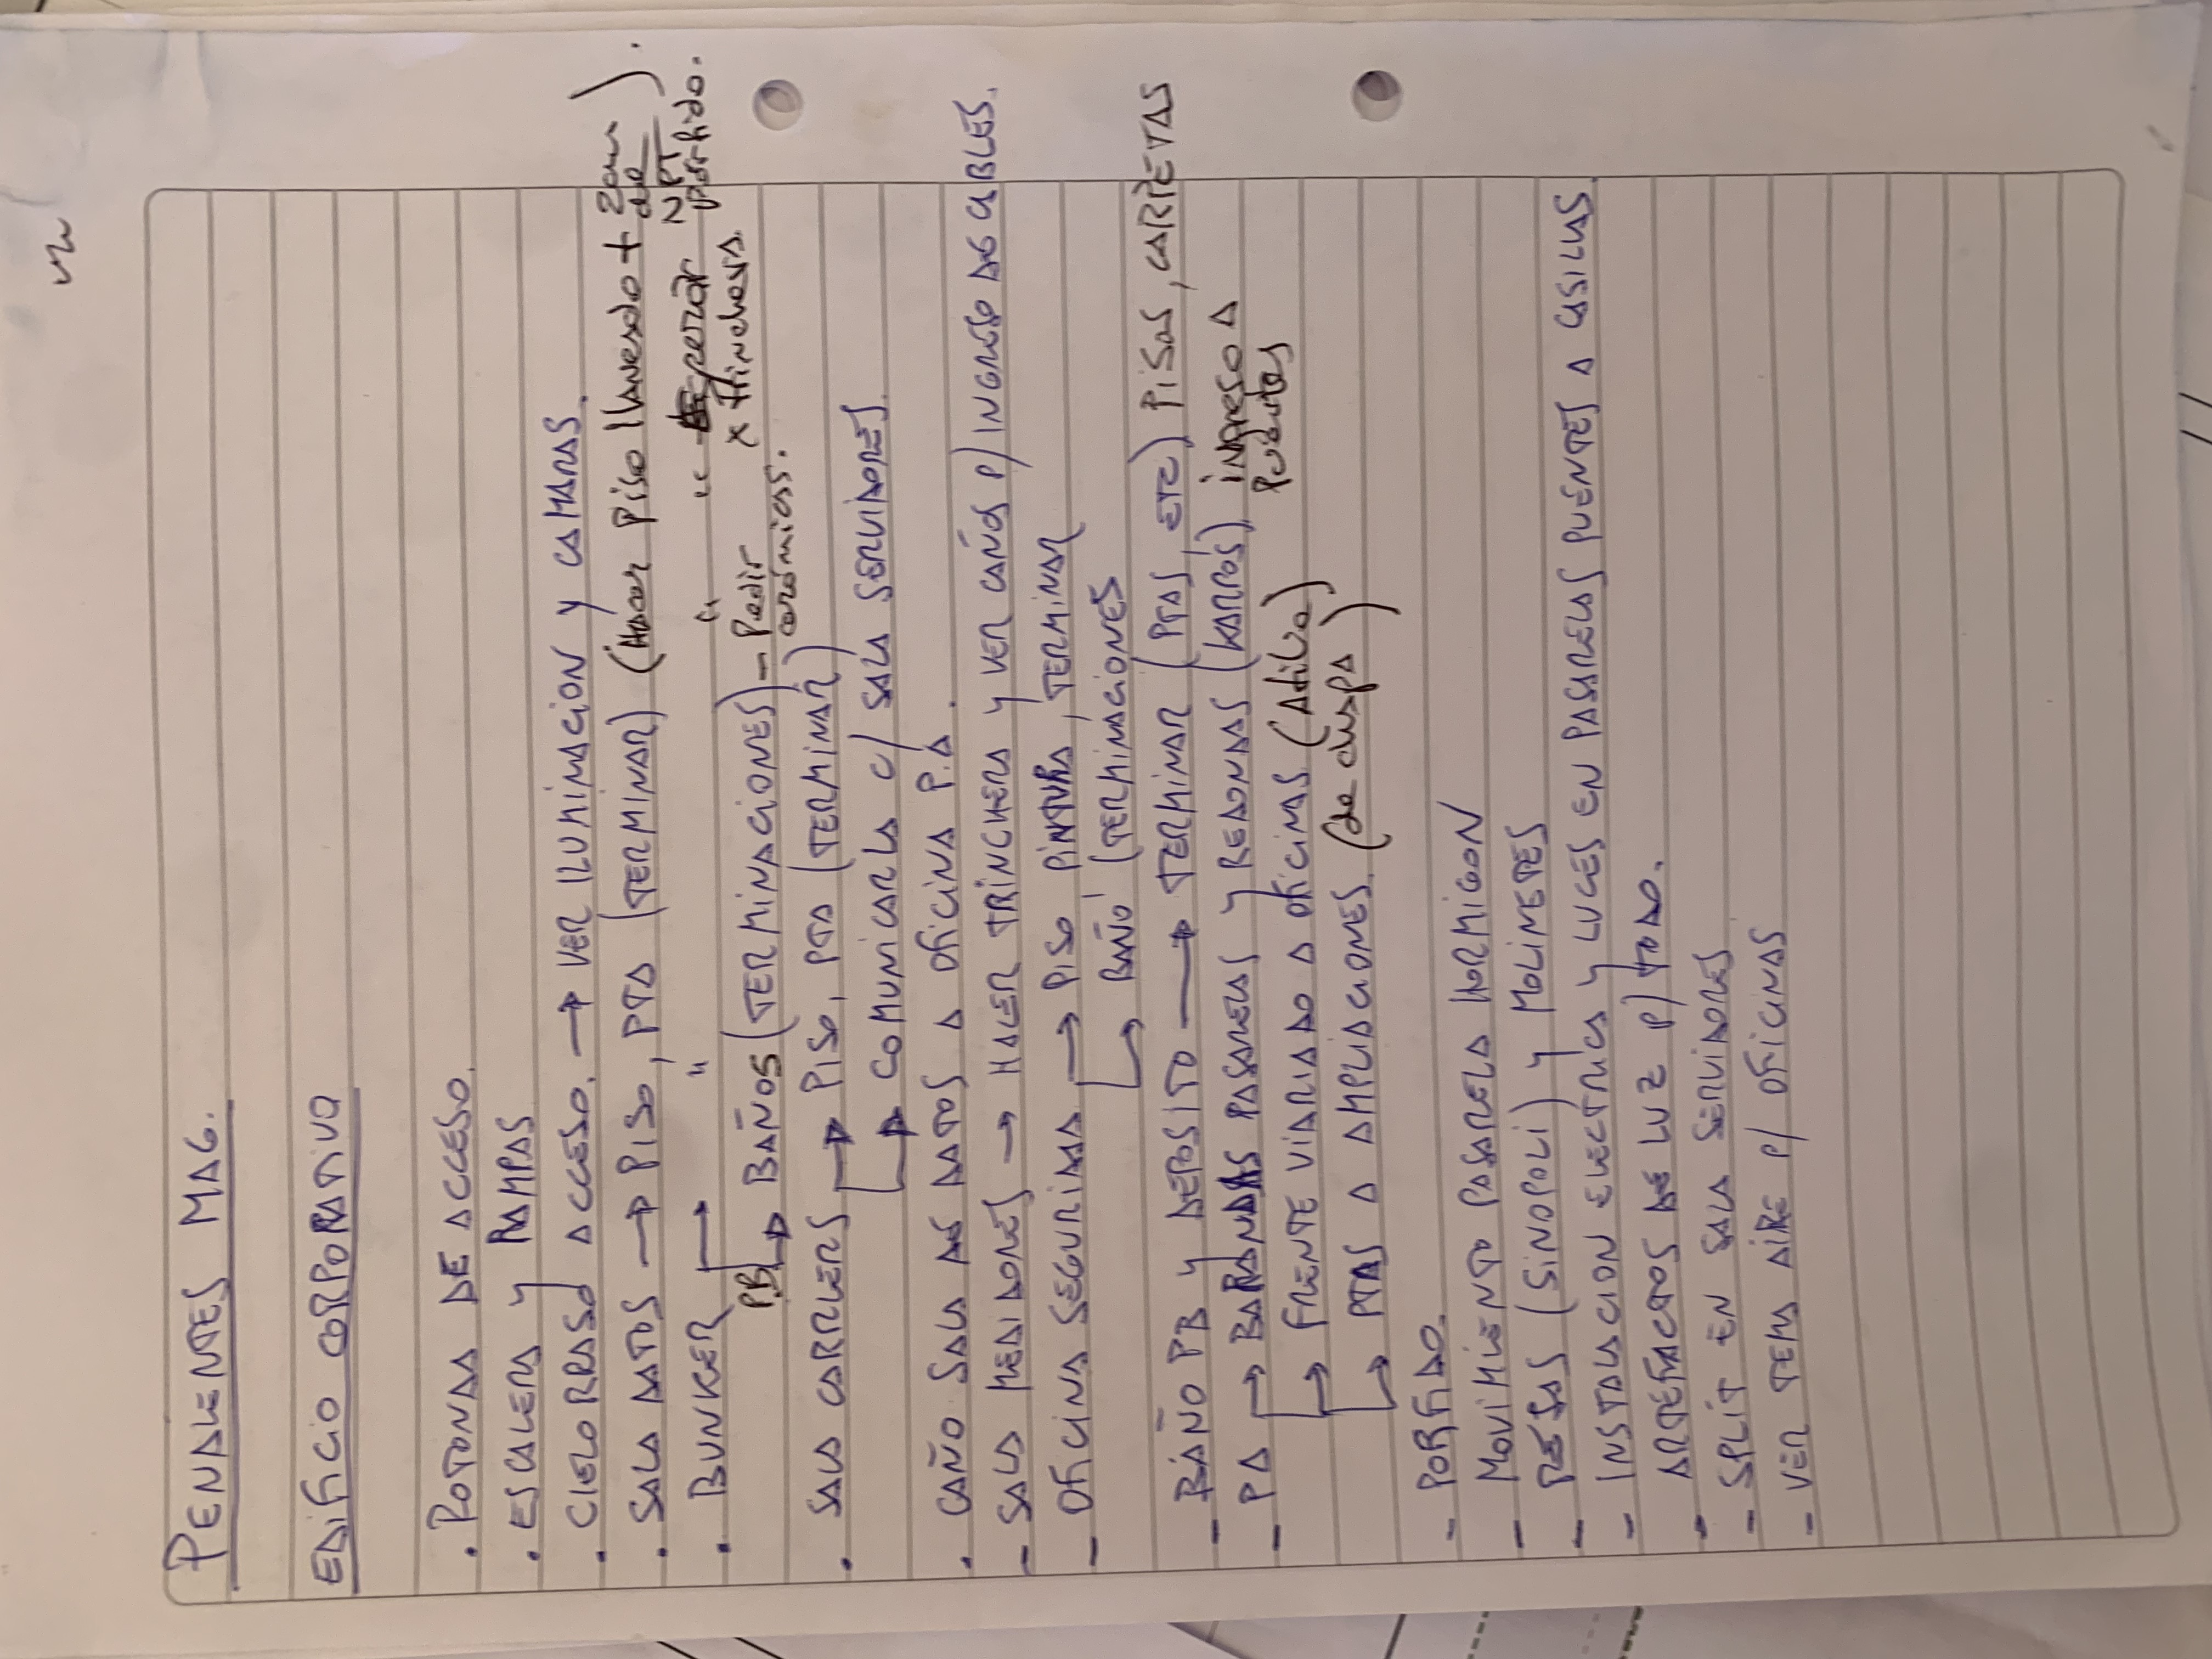 PENDIENTES MAG.
EDIFICIO CORPORATIVO
• ROTONDA DE ACCESO.
• ESCALERA Y RAMPAS
• CIELORRASO ACCESO. → VER ILUMINACION Y CAMARAS.
• SALA DATOS → PISO, PTA (TERMINAR) (Hacer Piso llaneado + 2cm de NPT).
• BUNKER → " " " " esperar porfido.
PB → BAÑOS (TERMINACIONES) – Pedir cerámicas. x trinchera.
• SALA CARRIERS → PISO, PTA (TERMINAR)
→ COMUNICARLA C/ SALA SERVIDORES.
• CAÑO SALA DE DATOS A OFICINA P.A.
- SALA MEDIDORES → HACER TRINCHERA Y VER CAÑOS P/ INGRESO DE CABLES.
- OFICINA SEGURIDAD → PISO PINTURA, TERMINAR
→ BAÑO (TERMINACIONES
- BAÑO PB Y DEPOSITO → TERMINAR (PTAS, ETC) PISOS, CARPETAS
- PA → BARANDAS PASARELAS Y REDONDAS (KARPOS) ingreso a Puentes
→ FRENTE VIDRIADO A OFICINAS. (Atilio)
→ PTAS A AMPLIACIONES. (de chapa)
- PORFIDO.
- MOVIMIENTO PASARELA HORMIGON
- REJAS (SINOPOLI) Y MOLINETES
- INSTALACION ELECTRICA Y LUCES EN PASARELAS PUENTES A CASILLAS.
- ARTEFACTOS DE LUZ P/ TODO.
- SPLIT EN SALA SERVIDORES
- VER TEMA AIRE P/ OFICINAS